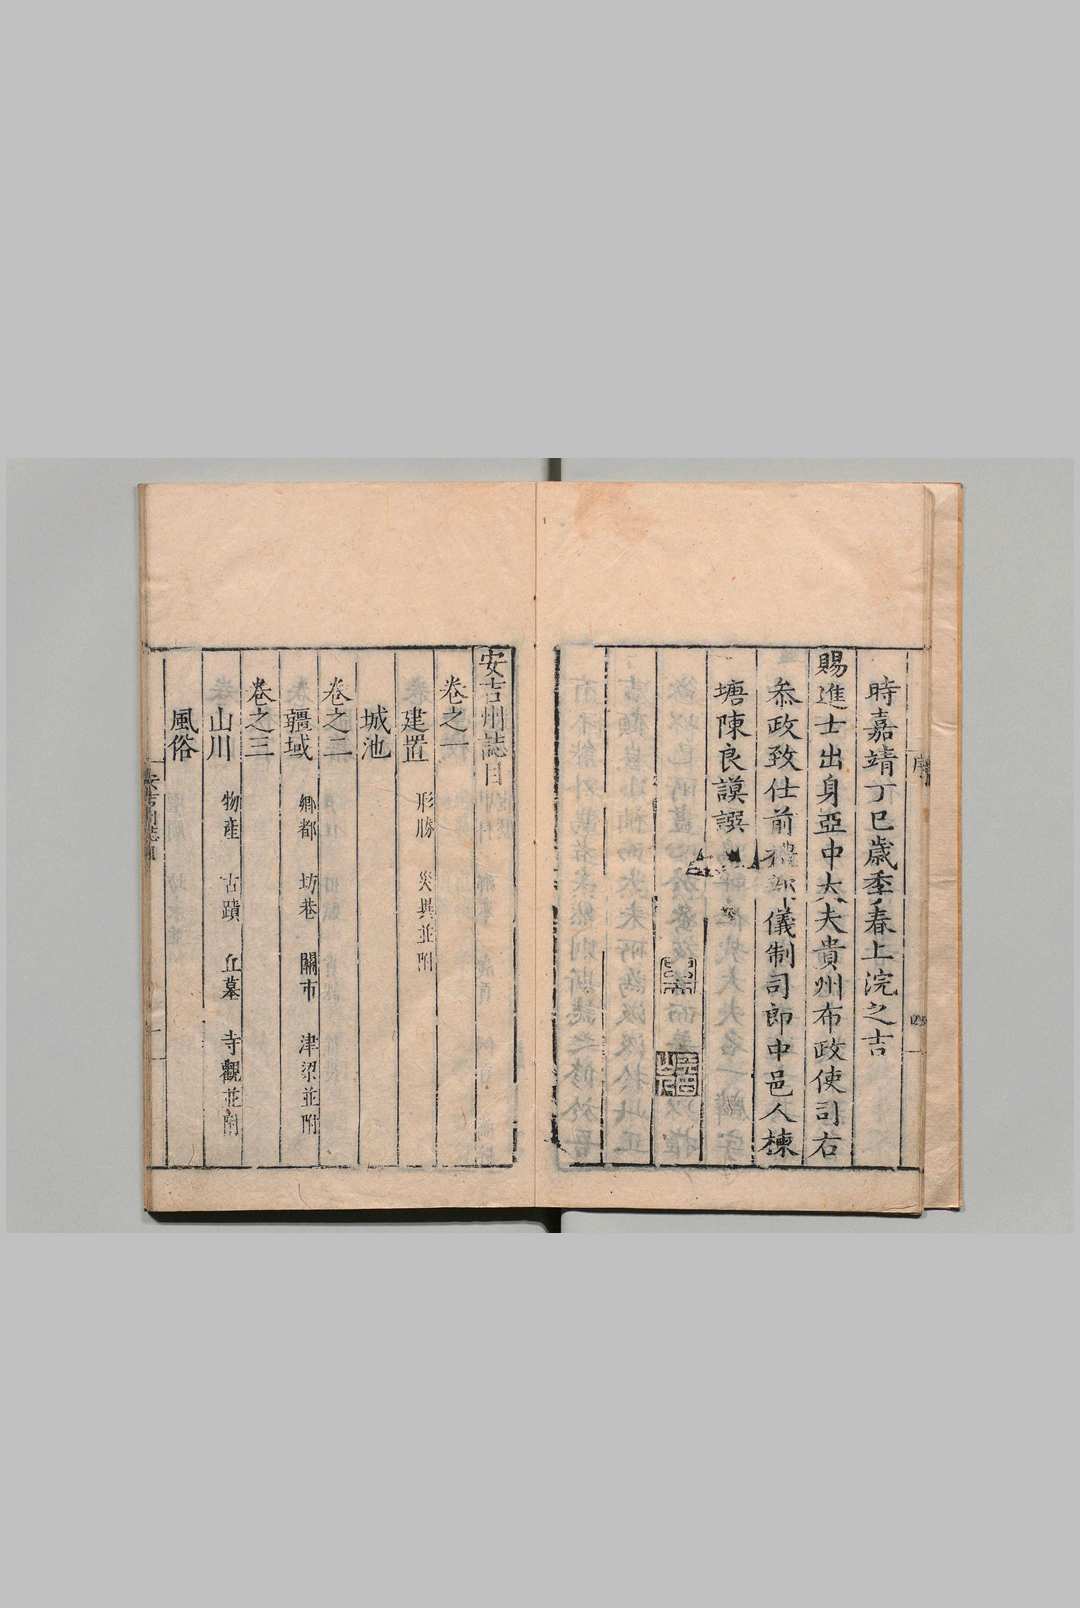 時嘉靖丁巳歳季春上浣之吉
賜進士出身亞中大夫貴州布政使司右
叅政致仕前禮部儀制司郎中邑人楝
塘陳良謨譔
安吉州誌目
卷之一
建置 形勝 災異並附
城池
卷之二
疆域 鄉都 坊巷 關市 津梁並附
卷之三
山川 物產 古蹟 丘墓 寺觀並附
風俗
安吉州誌目
序